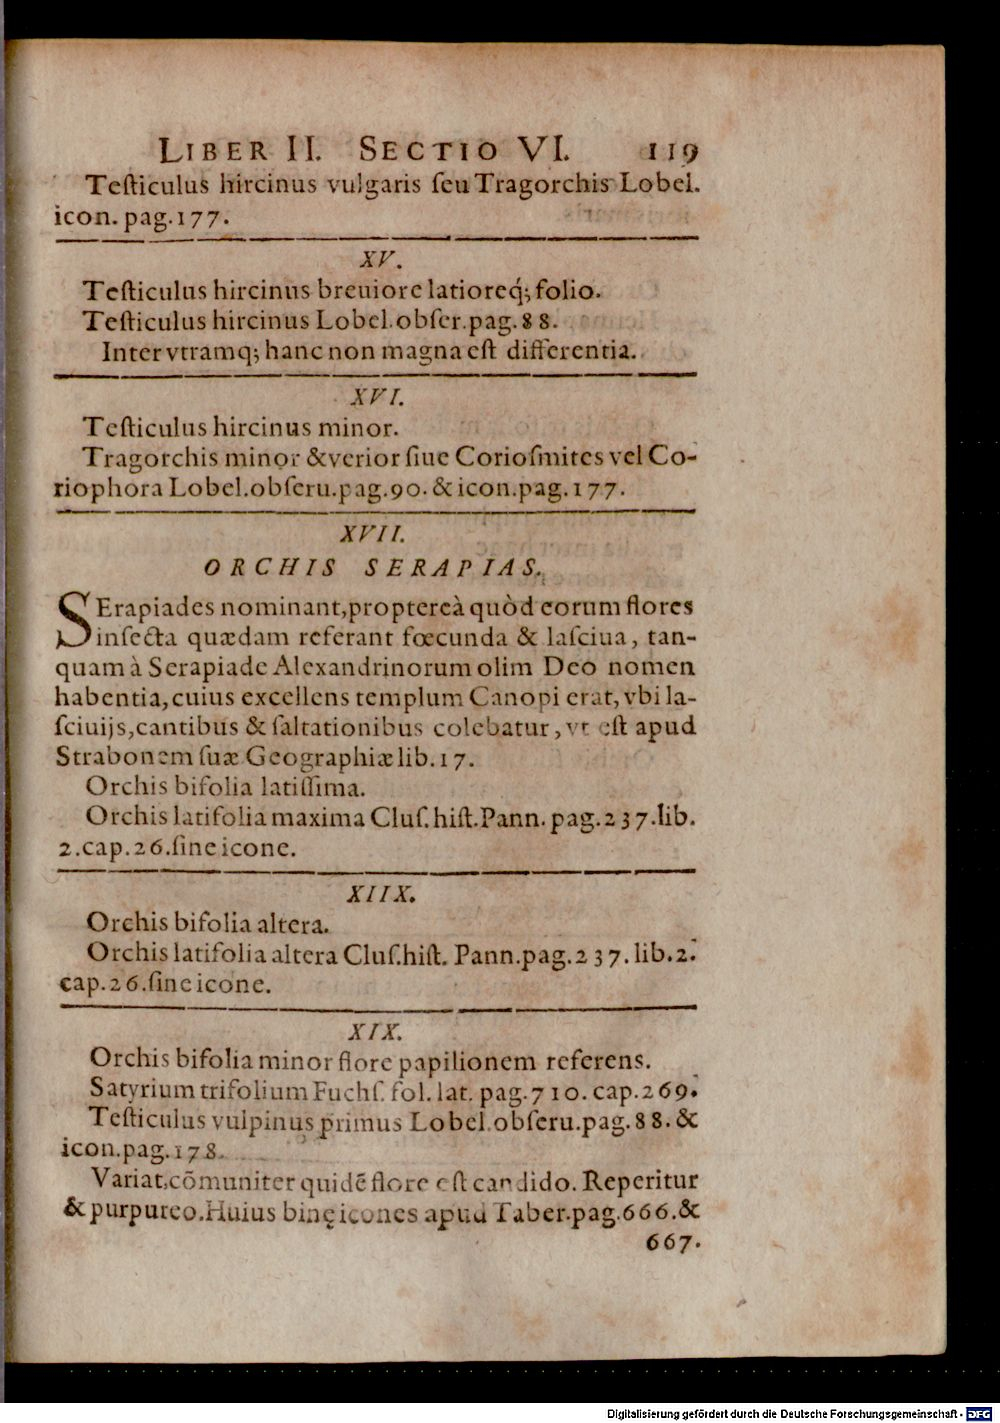 LIBER II. SECTIO VI. 119
Teſticulus hircinus vulgaris ſeu Tragorchis Lobel.
icon. pag.177.
XV.
Teſticulus hircinus breuiore latioreq́; folio.
Teſticulus hircinus Lobel.obſer.pag.88.
Inter vtramq; hanc non magna eſt differentia.
XVI.
Teſticulus hircinus minor.
Tragorchis minor & verior ſiue Corioſmites vel Co-
riophora Lobel.obſeru.pag.90. & icon.pag.177.
XVII.
ORCHIS SERAPIAS.
SErapiades nominant,proptereà quòd eorum flores
inſecta quædam referant fœcunda & laſciua, tan-
quam à Serapiade Alexandrinorum olim Deo nomen
habentia,cuius excellens templum Canopi erat, vbi la-
ſciuijs,cantibus & ſaltationibus colebatur, vt eſt apud
Strabonem ſuæ Geographiæ lib.17.
Orchis bifolia latiſſima.
Orchis latifolia maxima Cluſ.hiſt.Pann. pag.237.lib.
2.cap.26.ſine icone.
XIIX.
Orchis bifolia altera.
Orchis latifolia altera Cluſ.hiſt. Pann.pag.237. lib.2.
cap.26.ſine icone.
XIX.
Orchis bifolia minor flore papilionem referens.
Satyrium trifolium Fuchſ. fol. lat. pag.710. cap.269.
Teſticulus vulpinus primus Lobel.obſeru.pag.88. &
icon.pag.178.
Variat,cōmuniter quidē flore eſt candido. Reperitur
& purpureo.Huius binę icones apud Taber.pag.666.&
667.
Digitalisierung gefördert durch die Deutsche Forschungsgemeinschaft - DFG